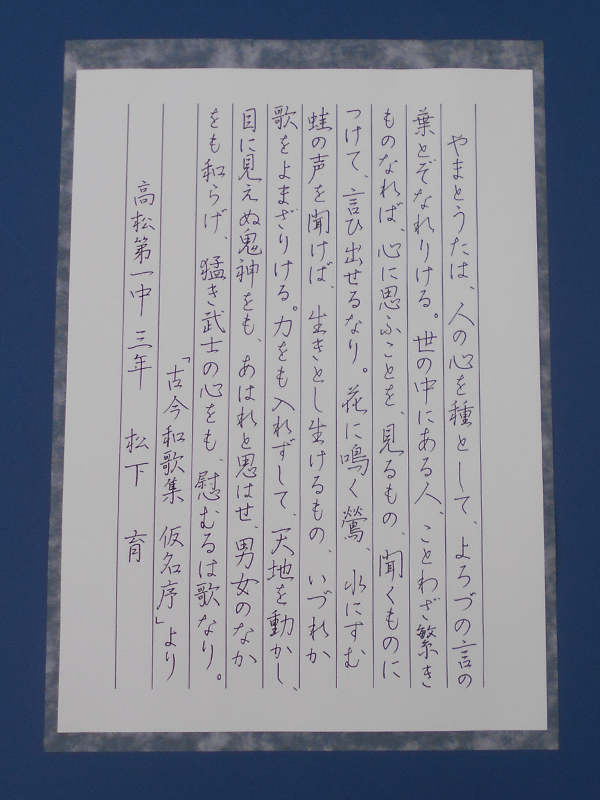 やまとうたは、人の心を種として、よろづの言の
葉とぞなれりける。世の中にある人、ことわざ繁き
ものなれば、心に思ふことを、見るもの、聞くものに
つけて、言ひ出せるなり。花に鳴く鶯、水にすむ
蛙の声を聞けば、生きとし生けるもの、いづれか
歌をよまざりける。力をも入れずして、天地を動かし、
目に見えぬ鬼神をも、あはれと思はせ、男女のなか
をも和らげ、猛き武士の心をも、慰むるは歌なり。
「古今和歌集 仮名序」より
高松第一中 三年 松下 育